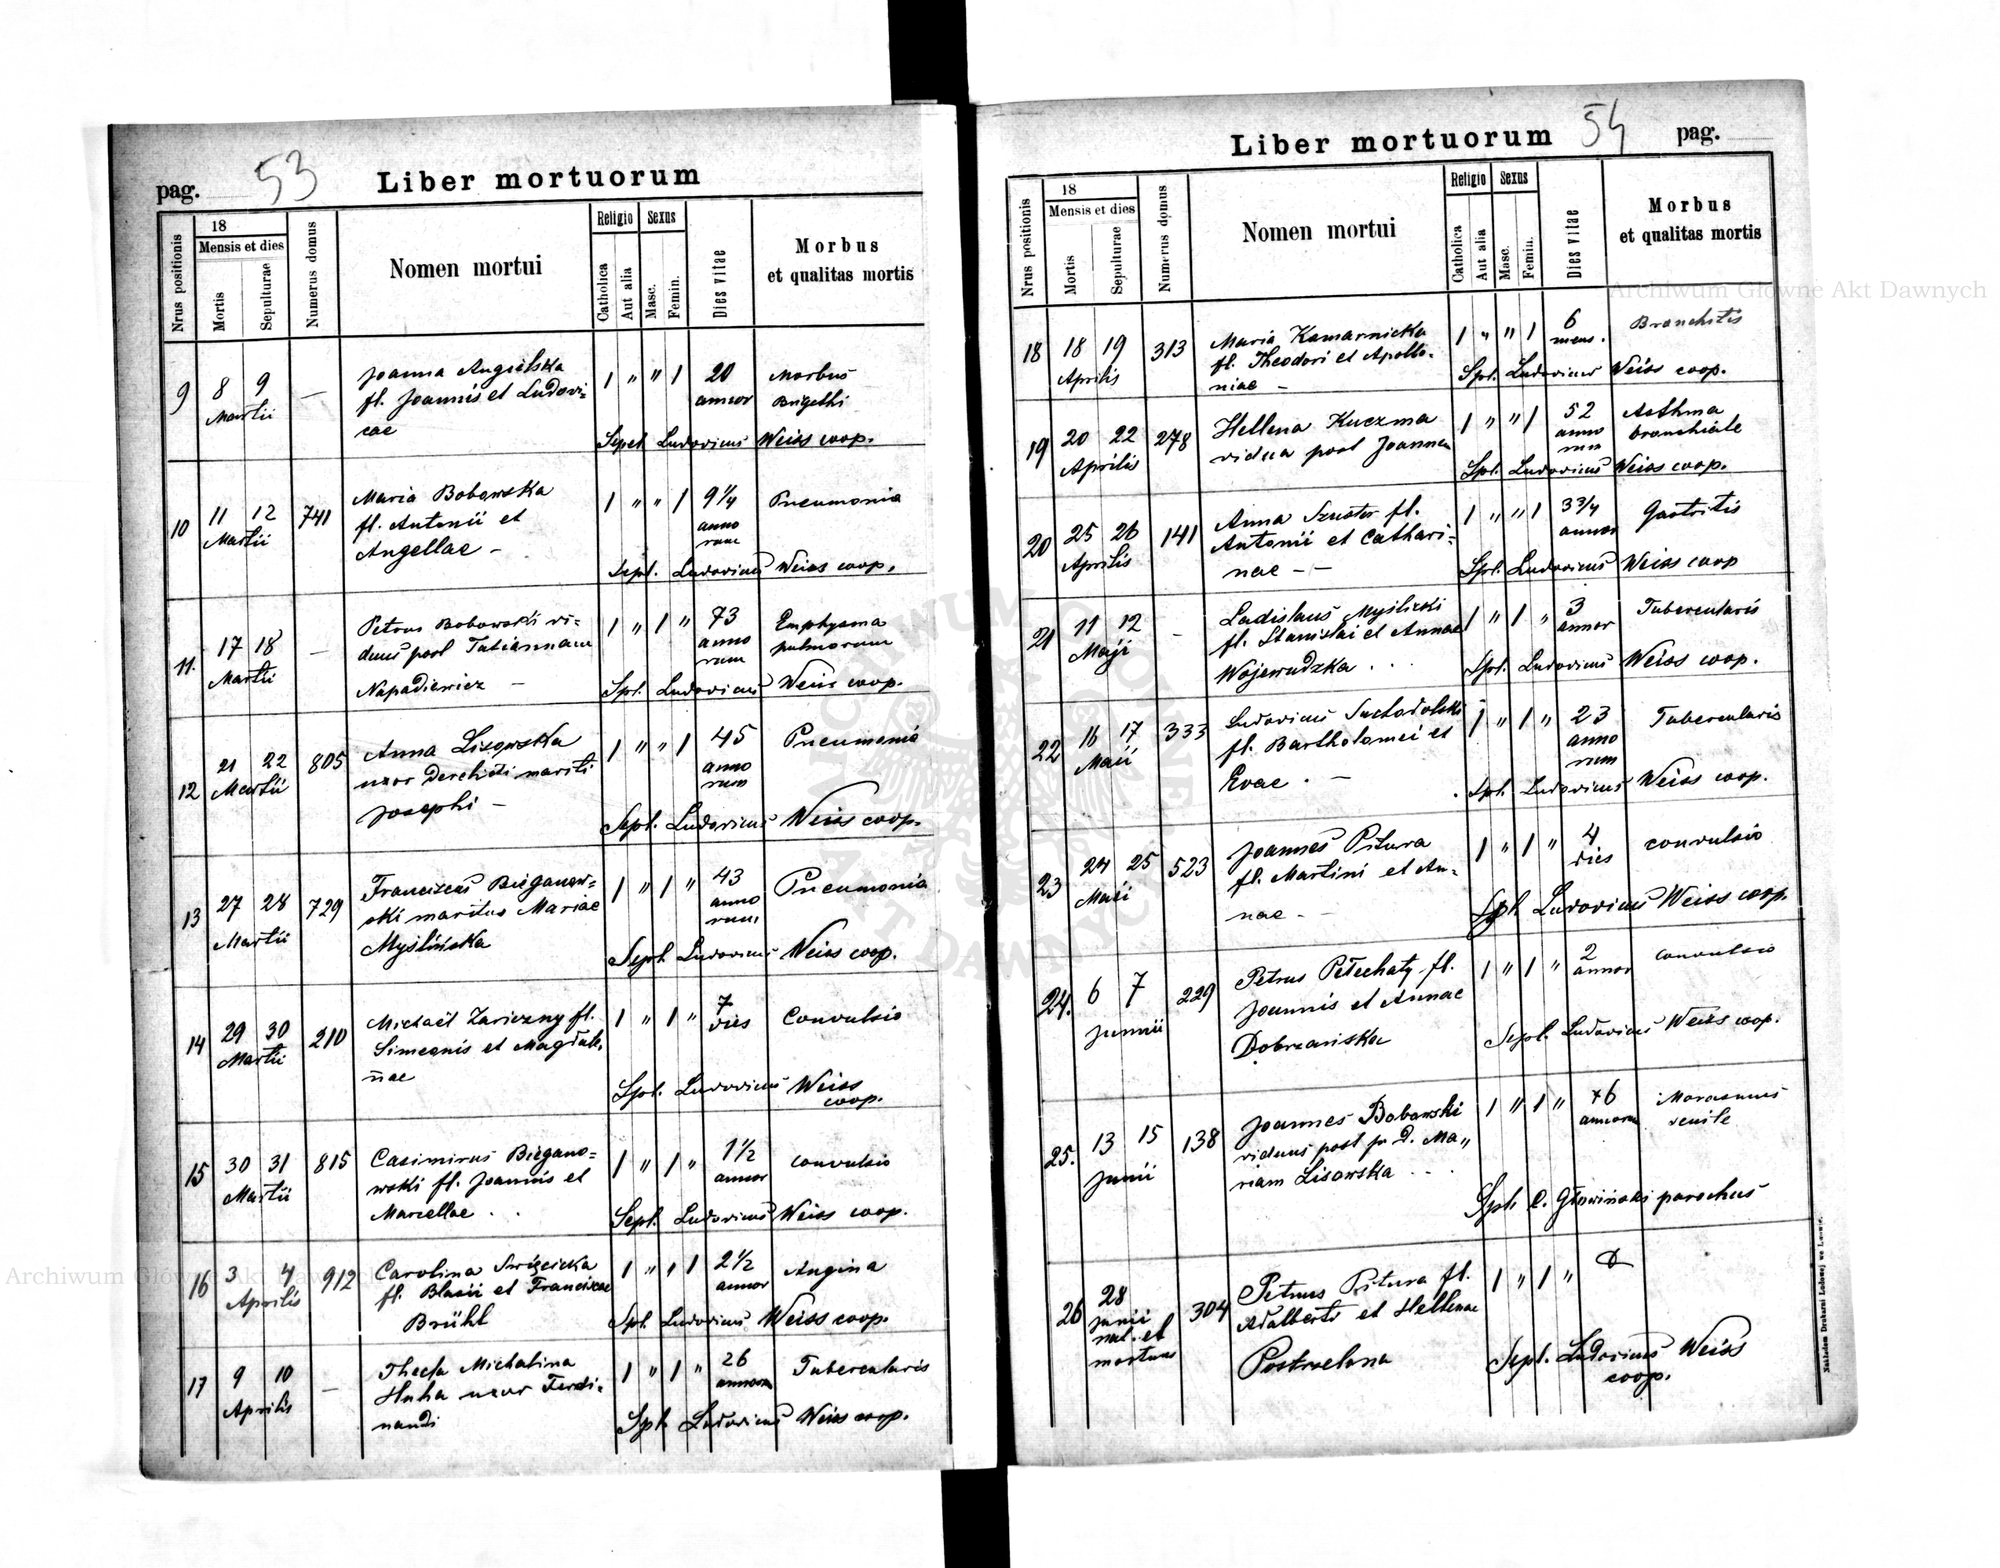 pag. 53 Liber mortuorum
Nrus positionis
18
Mensis et dies
Mortis
Sepulturae
Numerus domus
Nomen mortui
Religio
Catholica
Aut alia
Sexus
Masc.
Femin.
Dies vitae
Morbus
et qualitas mortis
9 8 9 — Joanna Angielska 1 " " 1 20 Morbus
Martii fl. Joannis et Ludovi= annor Brigethi
cae
Sepel Ludovicus Weiss coop.
10 11 12 741 Maria Bobowska 1 " " 1 9 1/4 Pneumonia
Martii fl. Antonii et anno
Angellae — rum
Sepl. Ludovicus Weiss coop.
11. 17 18 — Petrus Bobowski vi= 1 " 1 " 73 Emphysema
Martii duus post Tatiannam anno pulmorum
Napadiewicz — rum
Spl. Ludovicus Weiss coop.
12 21 22 805 Anna Lisowska 1 " " 1 45 Pneumonia
Martii uxor Derelicti mariti anno
Josephi — rum
Sepl. Ludovicus Weiss coop.
13 27 28 729 Franciscus Bieganow= 1 " 1 " 43 Pneumonia
Martii ski maritus Mariae anno
Myślińska rum
Sepl. Ludovicus Weiss coop.
14 29 30 210 Michaël Zariczny fl. 1 " 1 " 7 Convulsio
Martii Simeonis et Magdale, dies
nae
Spl. Ludovicus Weiss
coop.
15 30 31 815 Casimirus Biegano= 1 " 1 " 1 1/2 convulsio
Martii wski fl. Joannis et annor
Marcellae . .
Sepl. Ludovicus Weiss coop.
16 3 4 912 Carolina Święcicka 1 " " 1 2 1/2 Angina
Aprilis fl. Blasii et Franciscae annor
Brühl Spl. Ludovicus Weiss coop.
17 9 10 — Thecla Michalina 1 " 1 " 26 Tubercularis
Aprilis Huha uxor Ferdi= annorum
nandi Spl. Ludovicus Weiss coop.
Liber mortuorum 54 pag.
Nrus positionis
18
Mensis et dies
Mortis
Sepulturae
Numerus domus
Nomen mortui
Religio
Catholica
Aut alia
Sexus
Masc.
Femin.
Dies vitae
Morbus
et qualitas mortis
18 18 19 313 Maria Kamarnicka 1 " " 1 6 Bronchitis
Aprilis fl. Theodori et Apollo= mens.
niae — Spl. Ludovicus Weiss coop.
19 20 22 278 Hellena Kuczma 1 " " 1 52 Asthma
Aprilis vidua post Joannem anno bronchiale
rum
Spl. Ludovicus Weiss coop.
20 25 26 141 Anna Szuster fl. 1 " " 1 3 3/4 Gastritis
Aprilis Antonii et Cathari= annor
nae — — Spl. Ludovicus Weiss coop
21 11 12 — Ladislaus Myślicki 1 " 1 " 3 Tubercularis
Maji fl. Stanislai et Annae annor
Wojewudzka . . . Spl. Ludovicus Weiss coop.
22 16 17 333 Ludovicus Suchodolski 1 " 1 " 23 Tubercularis
Maii fl. Bartholomei et anno
Evae . — rum
Spl. Ludovicus Weiss coop.
23 24 25 523 Joannes Pitura 1 " 1 " 4 convulsio
Maii fl. Martini et An= dies
nae - — Spl. Ludovicus Weiss coop.
24. 6 7 229 Petrus Pełechaty fl. 1 " 1 " 2 convulsio
Junnii Joannis et Annae annor
Dobrzańska Sepl. Ludovicus Weiss coop.
25. 13 15 138 Joannes Bobowski 1 " 1 " 76 Marasmus
Junii viduus post p. D. Ma„ annorum senile
riam Lisowska . . .
Spl. C. Głowiński parochus
26 28 304 Petrus Pitura fl. 1 " 1 "
Junii Adalberti et Hellenae
nat. et
mortuus Sepl. Ludovicus Weiss
coop.
Nakładem Drukarni Ludowej we Lwowie.
Archiwum Główne Akt Dawnych
Archiwum Główne Akt Dawnych
ARCHIWUM GŁÓWNE AKT DAWNYCH